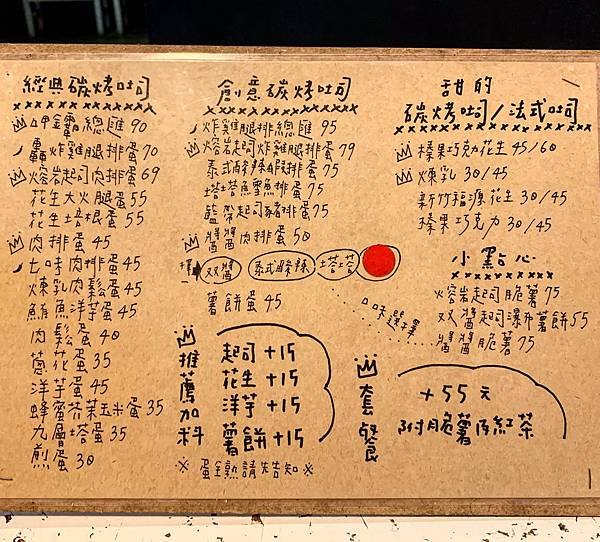 經典碳烤吐司
呷霸總匯 90
轟炸雞腿排蛋 70
熔岩起司肉排蛋 69
花生大火腿蛋 55
花生培根蛋 55
肉排蛋 45
七味肉排蛋 45
煉乳肉鬆蛋 45
鮪魚洋芋蛋 45
肉鬆蛋 40
蔥花蛋 35
洋芋蛋 45
蜂蜜芥茉玉米蛋 35
九層塔蛋 35
煎蛋 30
創意碳烤吐司
炸雞腿排總匯 95
熔岩起司炸雞腿排蛋 79
泰式酸辣蝦排蛋 75
塔塔鱈魚排蛋 75
藍帶起司豬排蛋 75
醬醬肉排蛋 50
擇 双醬 泰式酸辣 塔塔
薯餅蛋 45
口味選擇
推薦加料
起司 +15
花生 +15
洋芋 +15
薯餅 +15
※ 蛋全熟請告知 ※
甜的
碳烤吐司/法式吐司
榛果巧克花生 45/60
煉乳 30/45
新竹福源花生 30/45
榛果巧克力 30/45
小點心
熔岩起司脆薯 75
双醬起司瀑布薯餅 55
醬醬脆薯 75
套餐
+55 元
附脆薯&紅茶